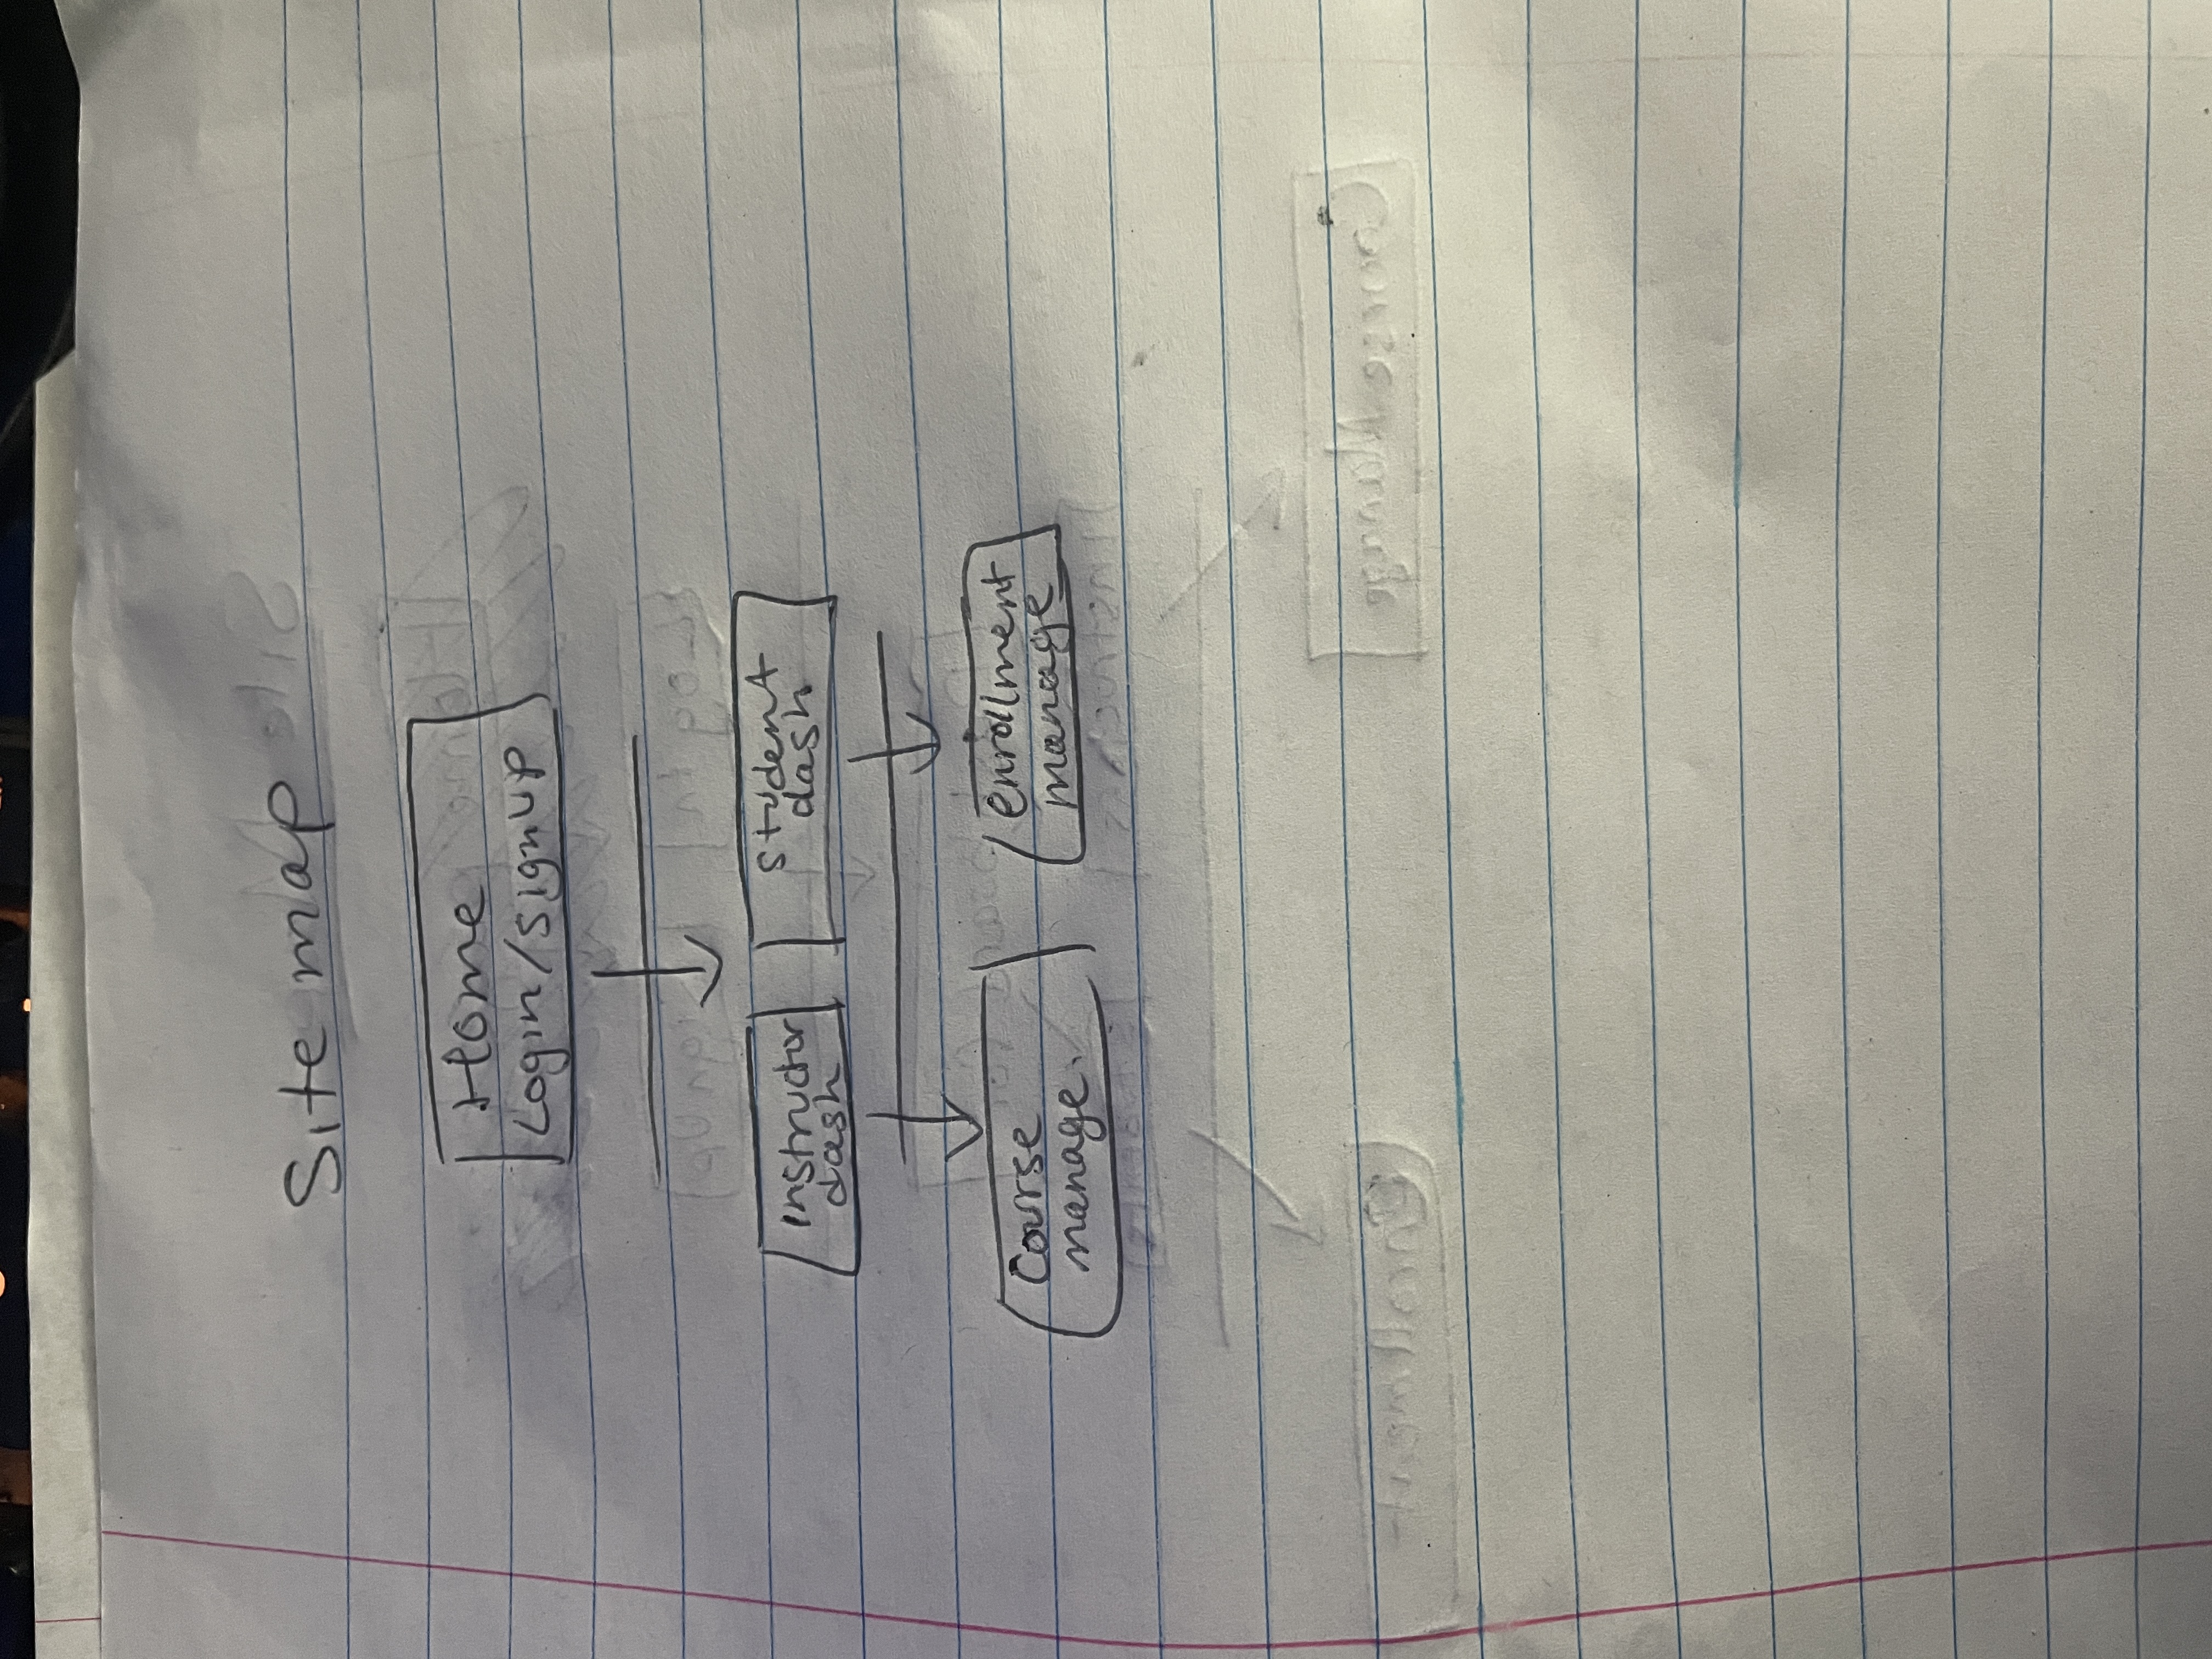 Site map
Home
Login/signup
instructor
dash
student
dash
Course
manage.
enrollment
manage